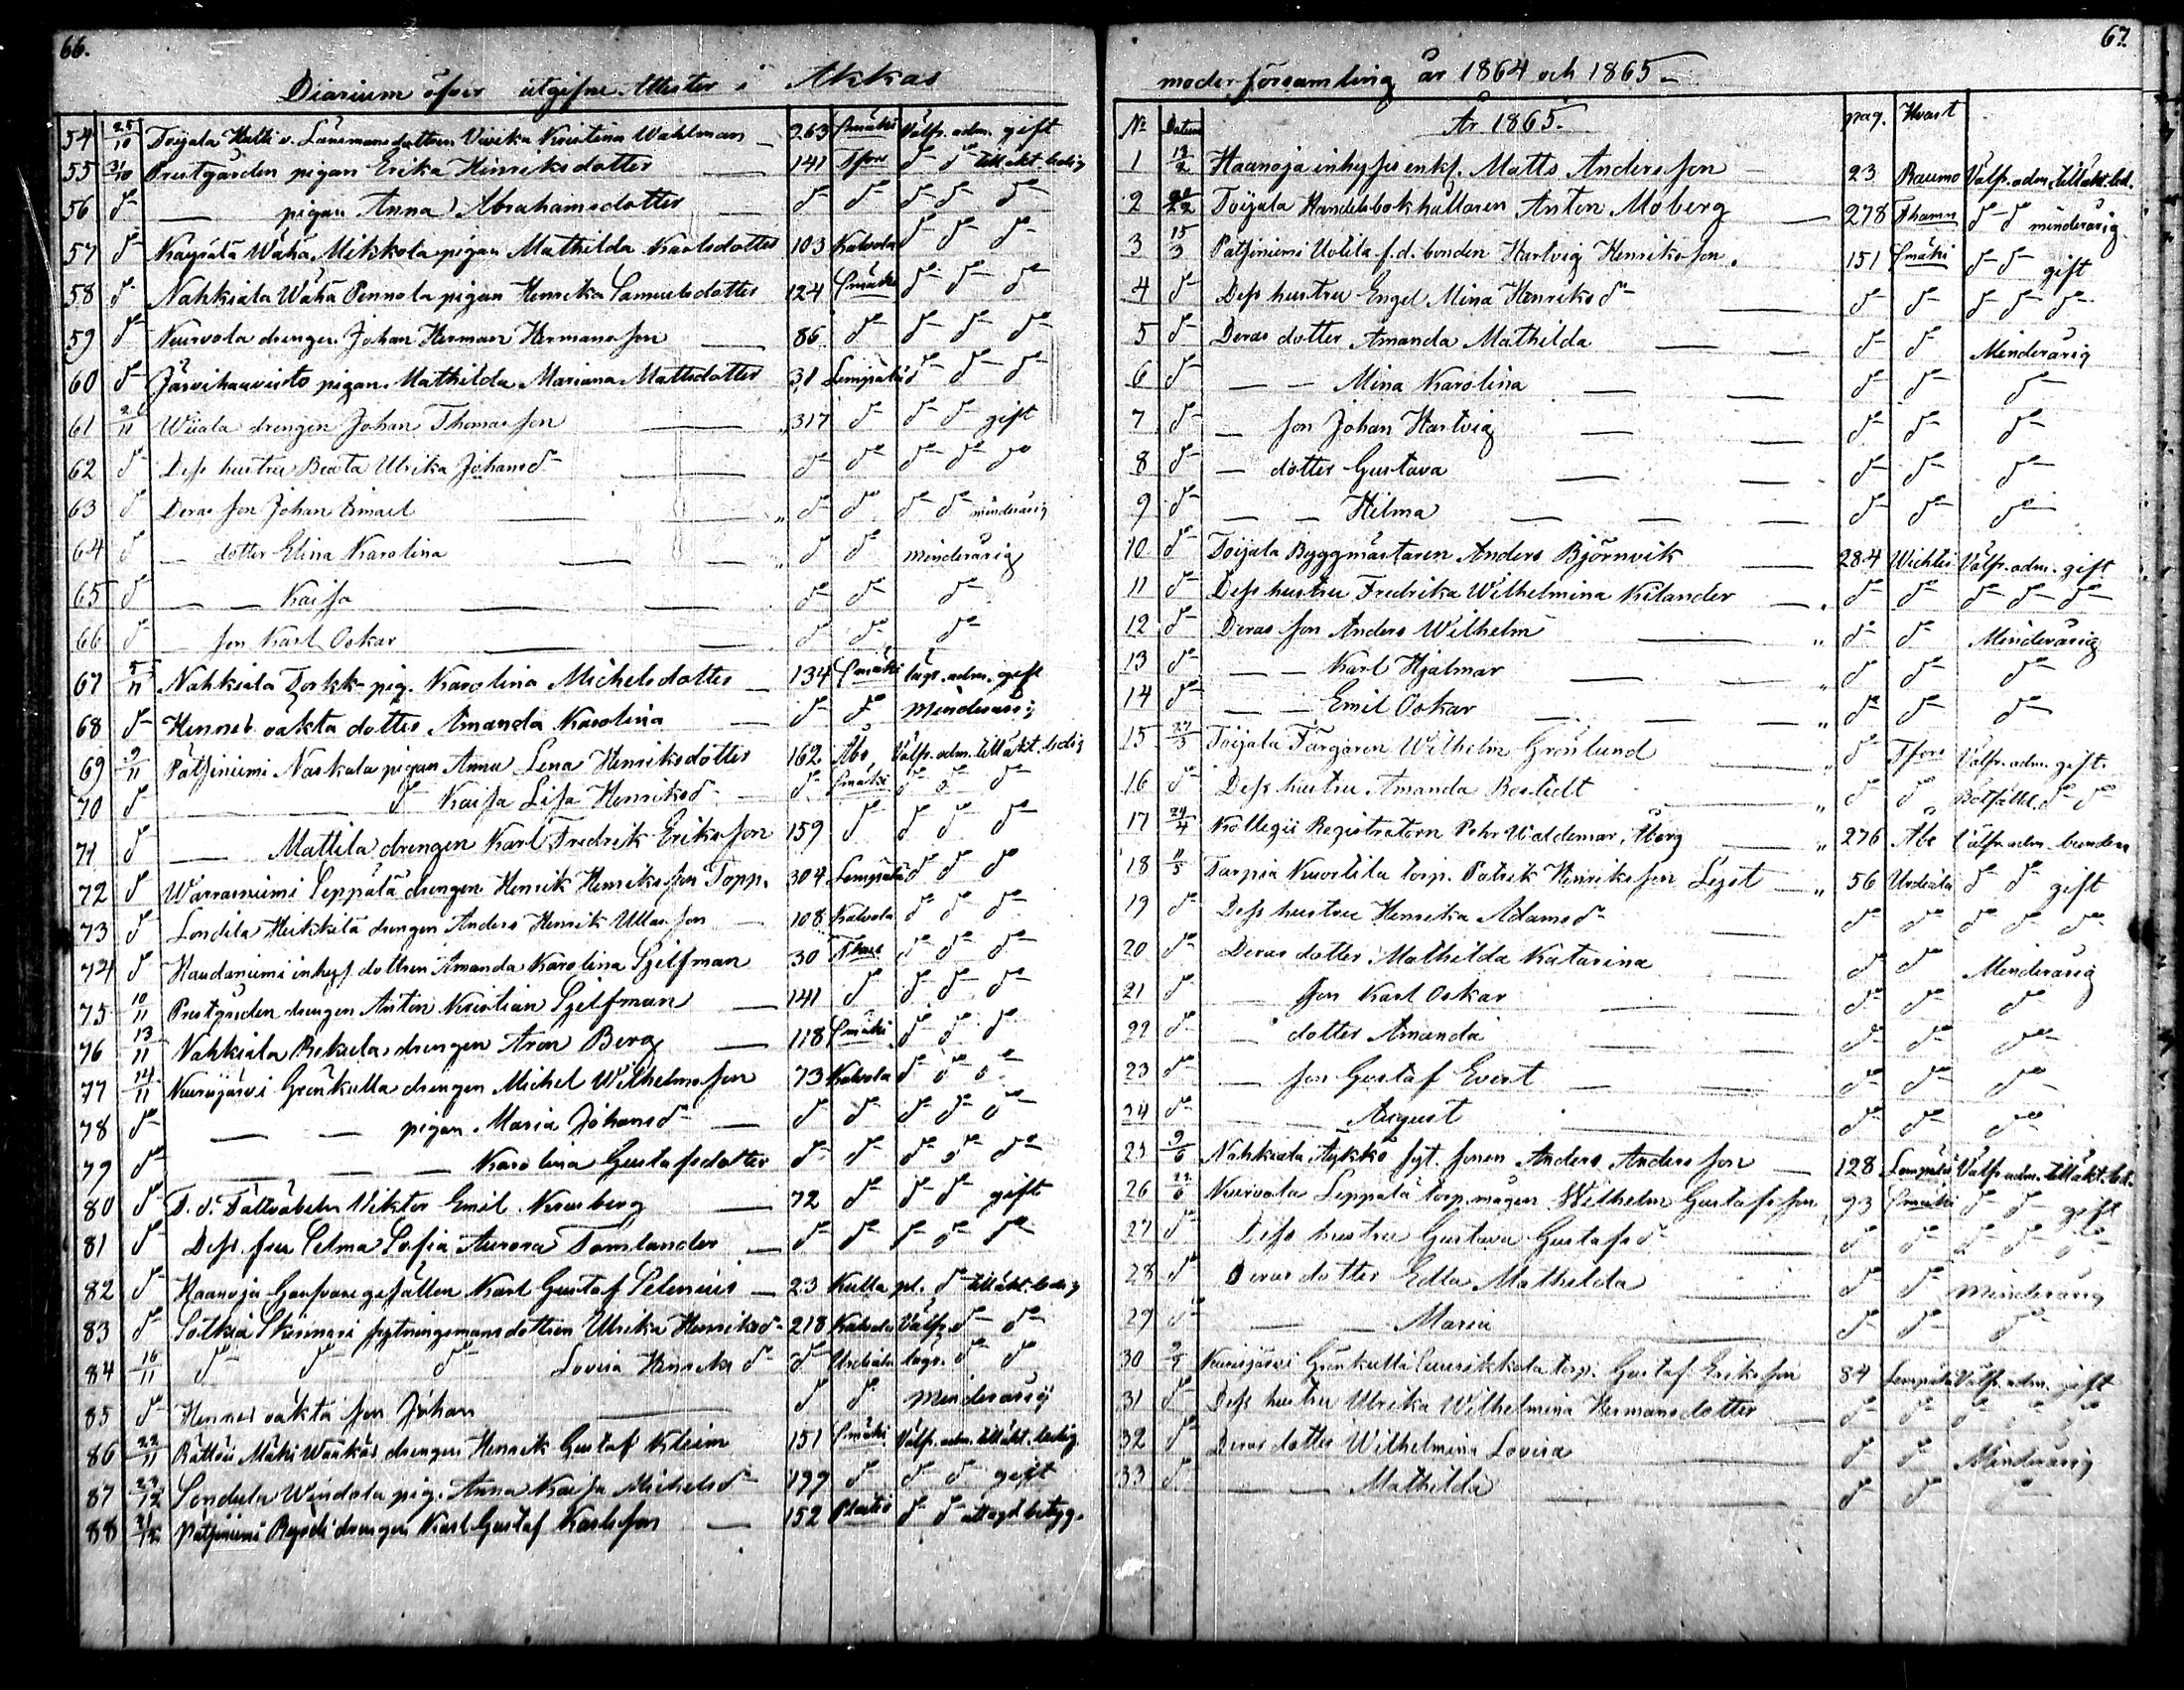 66.
Diarium öfver utgifne Attester i Akkas
54 25/10 Toijala Hulli v. Länsmansdottren Viveka Kristina Wahlman — 263 Smäki Välfr. adm. gift
55 31/10 Prestgården pigan Erika Hinriksdotter — 141 Tfors d— d— till äkt. ledig
56 d— — pigan Anna Abrahamsdotter — d— d— d— d— d—
57 d— Kägälä Wähä Mikkola pigan Mathilda Karlsdotter 103 Kalvola d— d— d—
58 d— Nahkiala Wähä Pennola pigan Henrika Samuelsdotter 124 Smäki d— d— d—
59 d— Kurvola drengen Johan Herman Hermansson — 86 d— d— d— d—
60 d— Järvihaavisto pigan Mathilda Mariana Mattsdotter 31 Lempälä d— d— d—
61 2/11 Wiiala drengen Johan Thomasson — 317 d— d— d— gift
62 d— Dess hustru Beata Ulrika Johansd— — d— d— d— d— d—
63 d Deras son Johan Ismael — d— d— d— d— minderårig
64 d — dotter Elina Karolina — d d minderårig
65 d — — Kaisa — d— d— d—
66 d — son Karl Oskar — d d— d—
67 5/11 Nahkiala Torkk— pig. Karolina Michelsdotter — 134 Smäki lägr. adm. gift
68 d— Hennes oäkta dotter Amanda Karolina — d— d— Minderårig
69 9/11 Pätsiniemi Naskala pigan Anna Lena Henriksdotter 162 Åbo Välfr. adm. till äkt. ledig
70 d — d— Kaisa Lisa Henriksd— — d— Smäki d— d— d—
71 d — Mattila drengen Karl Fredrik Eriksson 159 d d d d
72 d Warrasniemi Seppälä drengen Henrik Henriksson Topp. 304 Lempälä d d d
73 d Sondila Heikkilä drengen Anders Henrik Ullasson — 108 Kalvola d d d—
74 d Haudaniemi inhys. dottren Amanda Karolina Sjelfman 30 d— d— d—
75 10/11 Prestgården drengen Anton Kristian Sjelfman — 141 d d d d
76 13/11 Nahkiala Rekula drengen Aron Berg — 118 Smäki d d d
77 14/11 Kurisjärvi Grönkulla drengen Michel Wilhelmsson 73 Kalvola d d d
78 d— — — pigan Maria Johansd— — d d— d— d— d—
79 d— — — Karolina Gustafsdotter d— d— d— d— d—
80 d F. d. Fältväbeln Viktor Emil — 72 d d— d— gift
81 d— Dess fru Selma Sofia Aurora Tamlander — d— d— d— d— d—
82 d— Haanoja Garfvaregesällen Karl Gustaf Selenius — 23 Kulla pl. d— till äkt. ledig
83 d— Sotkia Skinnari sytningsmansdottren Ulrika Henriksd— 218 Kalvola Välfr. d— d—
84 16/11 d— d— d— Lovisa Henriks d— d— Urdiala lägr. d— d
85 d— Hennes oäkta son Johan — d d Minderårig
86 22/11 Rättöi Mäki drengen Henrik Gustaf Kleim 151 Smäki Välfr. adm. till äkt. ledig
87 Sondula Windala pig. Anna Kaisa Mickelsd— 199 d— d— d— gift
88 Pätsiniemi drengen Karl Gustaf Karlsson — 152 d— d— uttagit betyg.
67.
moderförsamling år 1864 och 1865 —
№ Datum År 1865. pag. Hvart
1 13/2 Haanoja inhyses enkf. Matts Andersson — 23 Raumo Välfr. adm. till äkt. led.
2 Toijala Handelsbokhållaren Anton Moberg — 278 Thamn d— d— minderårig
3 15/3 Pätsiniemi Uotila f. d. bonden Hartvig Henriksson. 151 Smäki d— d— gift
4 d— Dess hustru Engel Mina Henriks d— — d— d— d— d— d—
5 d— Deras dotter Amanda Mathilda — d— d— Minderårig
6 d— — — Mina Karolina — d— d— d—
7 d— — son Johan Hartvig — d— d— d—
8 d— — dotter Gustava — d— d— d—
9 d— — — Hilma — d— d— d—
10 d— Toijala Byggmästaren Anders Björnvik — 284 Wichtis Välfr. adm. gift
11 d— Dess hustru Fredrika Wilhelmina Kilander — d— d— d— d— d—
12 d— Deras son Anders Wilhelm — d— d— Minderårig
13 d— — — Karl Hjalmar — d d d
14 d— — — Emil Oskar — d— d— d—
15 27/3 Toijala Färgaren Wilhelm Grönlund — d— Tfors Välfr. adm. gift.
16 d— Dess hustru Amanda Bostedt — d d d— d—
17 24/4 Kollegii Registratorn Pehr Waldemar Åberg — 276 Åbo Välfr. adm. bunden
18 11/5 Tarpia Kuortila torp. Patrik Henriksson Legst — 56 Urdiala d d gift
19 d— Dess hustru Henrika Adamsd— — d— d— d— d— d—
20 d— Deras dotter Mathilda Katarina — d— d— Minderårig
21 d— — son Karl Oskar — d— d— d
22 d— — dotter Amanda — d— d— d—
23 d— — son Gustaf Evert — d— d— d—
24 d— — — August — d— d— d—
25 9/6 Nahkiala Äykkö syt. sonen Anders Andersson — 128 Lempälä Välfr. adm. till äkt. led.
26 22/6 Kurvola Leppälä torp. mågen Wilhelm Gustafsson 93 Smäki d— d— gift
27 d— Dess hustru Gustava Gustafsd— — d— d— d— d— d—
28 d— Deras dotter Edla Mathilda — d d Minderårig
29 d— — — Maria — d— d— d—
30 Kurisjärvi Grönkulla torp. Gustaf Eriksson 84 Lempälä Välfr. adm. gift
31 d— Dess hustru Ulrika Wilhelmina Hermansdotter — d— d— d— d d
32 d— Deras dotter Wilhelmina Lovisa — d d Minderårig
33 d— — — Mathilda — d d d—